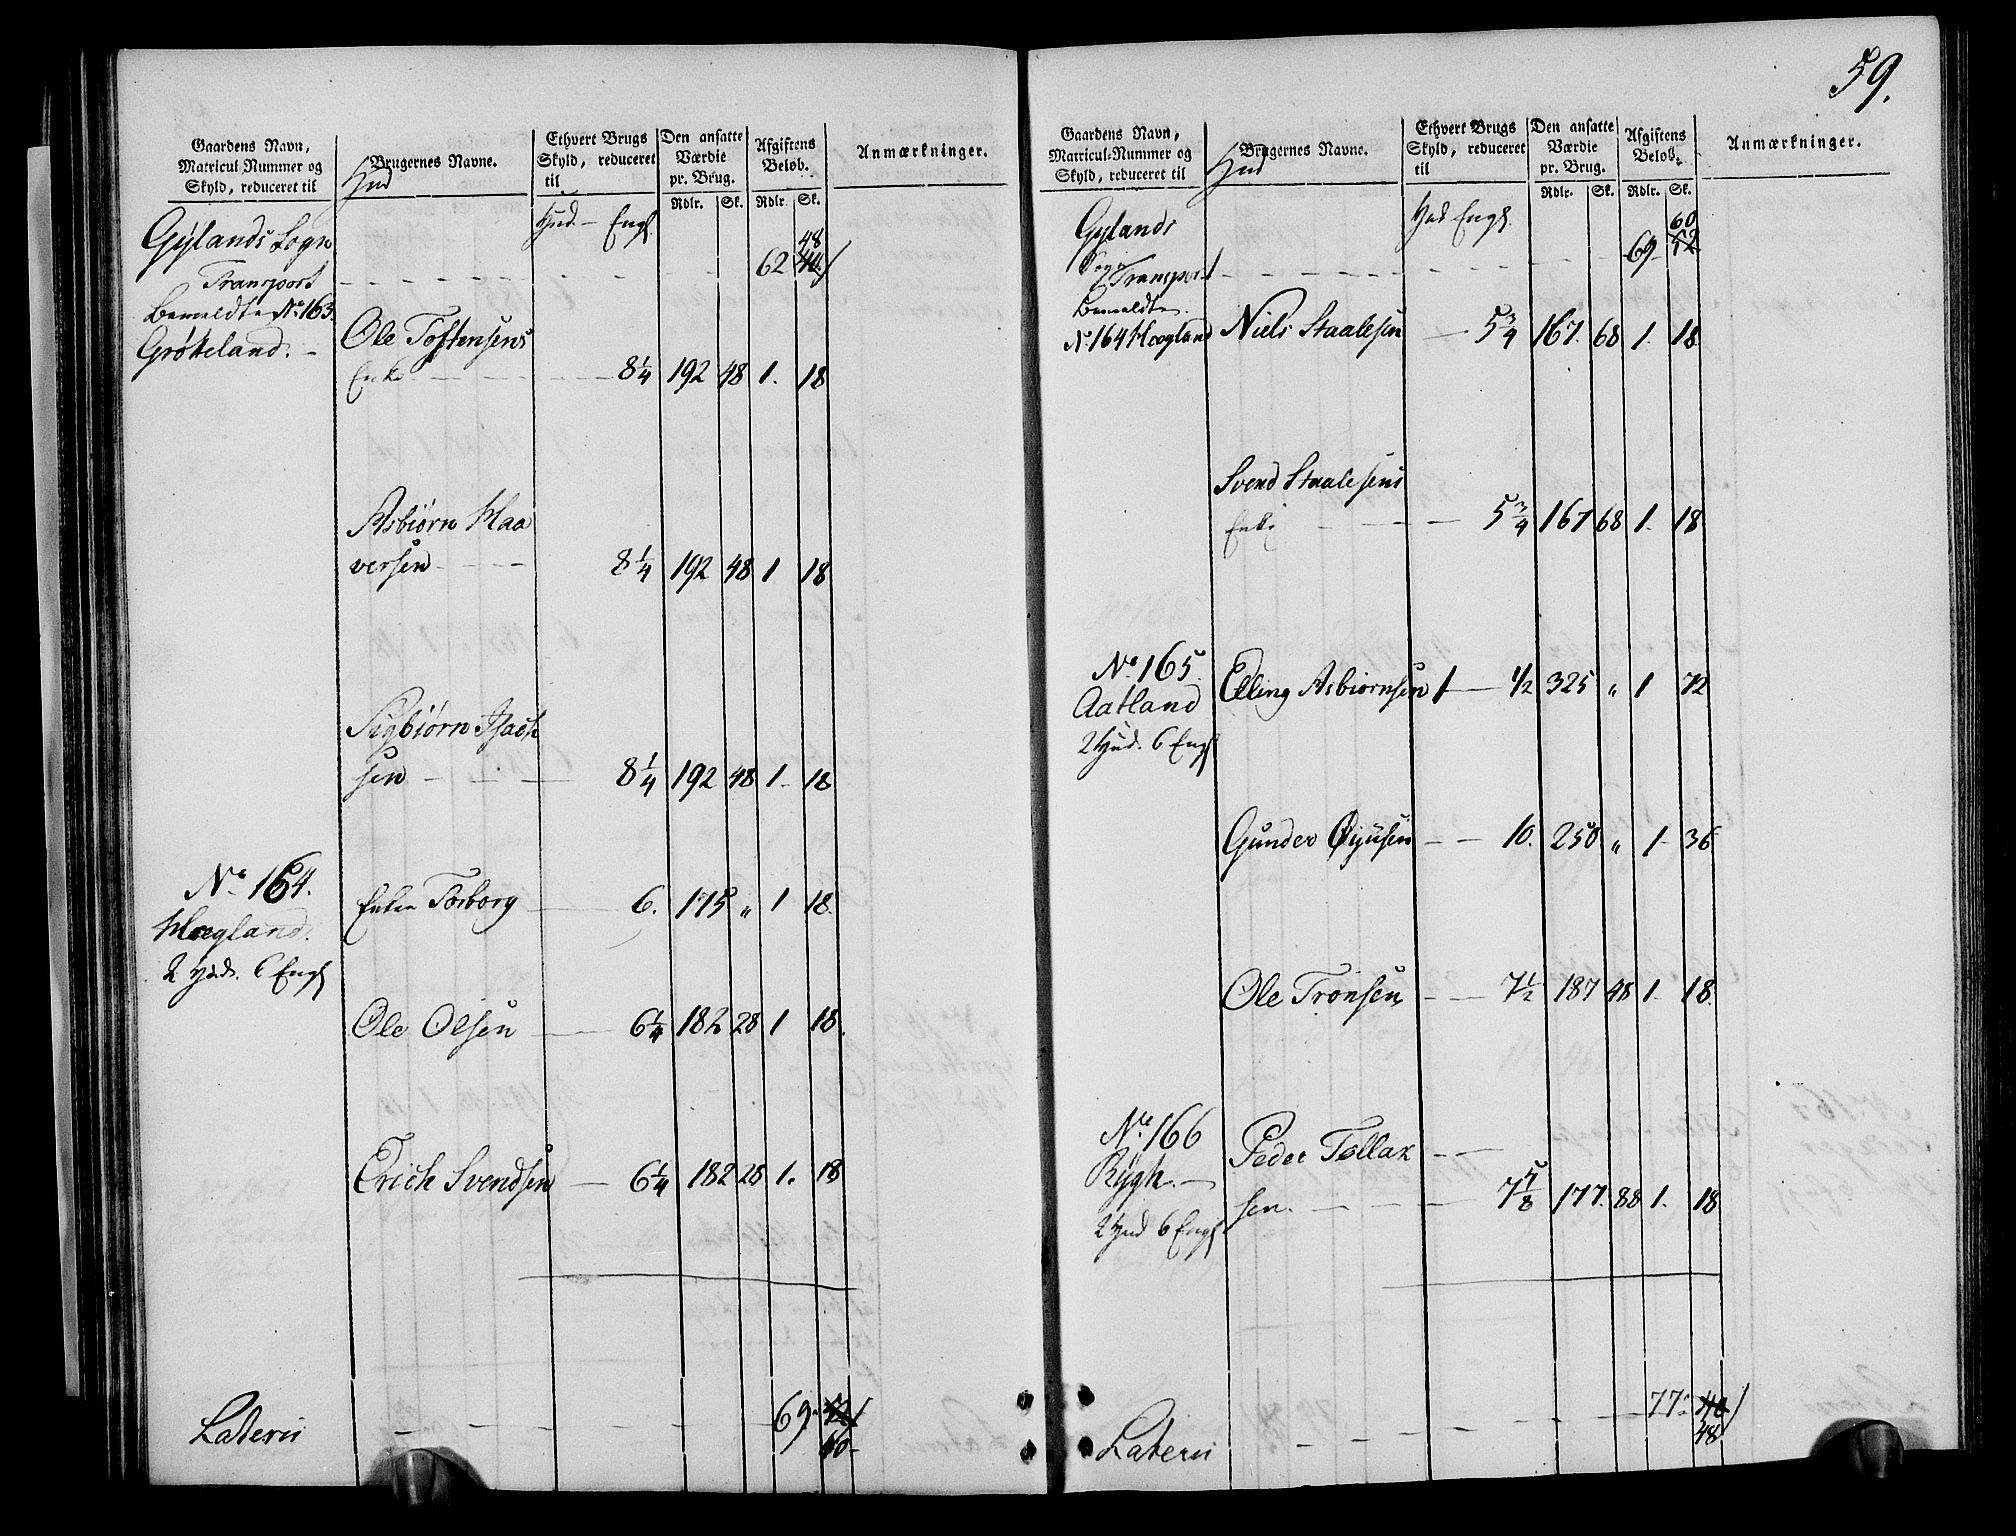 Gaardens Navn, Matricul-Nummer og Skyld, reduceret til
Hud
Brugernes Navne.
Ethvert Brugs Skyld, reduceret til
Den ansatte Værdie pr. Brug.
Rdlr. Sk.
Afgiftens Beløb.
Rdlr. Sk.
Anmærkninger.
Gÿlands Sogn Hud - Engs
48
Transport 62 40
Bemeldte No 163.
Grøteland. Ole Tostensens
Enke 8 1/4 192 48 1. 18
Asbiørn Haa
versen 8 1/4 192 48 1 18
Sigbiørn Isach
sen 8 1/4 192 48 1 18
No 164.
Enken Torborg 6. 175 „ 1 18.
Hoegland.
2 Hud. 6 Engs
Ole Olsen 6 1/4 182 28 1 18.
Erich Svendsen 6 1/4 182 28 1. 18
Lateris 69.
60
59.
Gaardens Navn, Matricul-Nummer og Skyld, reduceret til
Hud
Brugernes Navne.
Ethvert Brugs Skyld, reduceret til
Den ansatte Værdie pr. Brug.
Rdlr. Sk.
Afgiftens Beløb.
Rdlr. Sk.
Anmærkninger.
Gylands Hud Engs
60
Sogn Transport 69 52
Bemeldte
No 164 Hoegland Niels Staalesen 5 3/4 167. 68 1. 18
Svend Staalesens
Enke 5 3/4 167 68 1. 18
No 165.
Aatland Elling Asbiørnsen 1 1/2 325 „ 1 72
2 Hud. 6 Engs
Gunder 10. 250 „ 1 36
Ole Tronsen 7 1/2 187 48 1 18.
No 166 Peder Tollak
Rÿgh.
sen. 7 1/8 177. 88 1. 18
2 Hud 6 Engs
Lateris 77 40
48